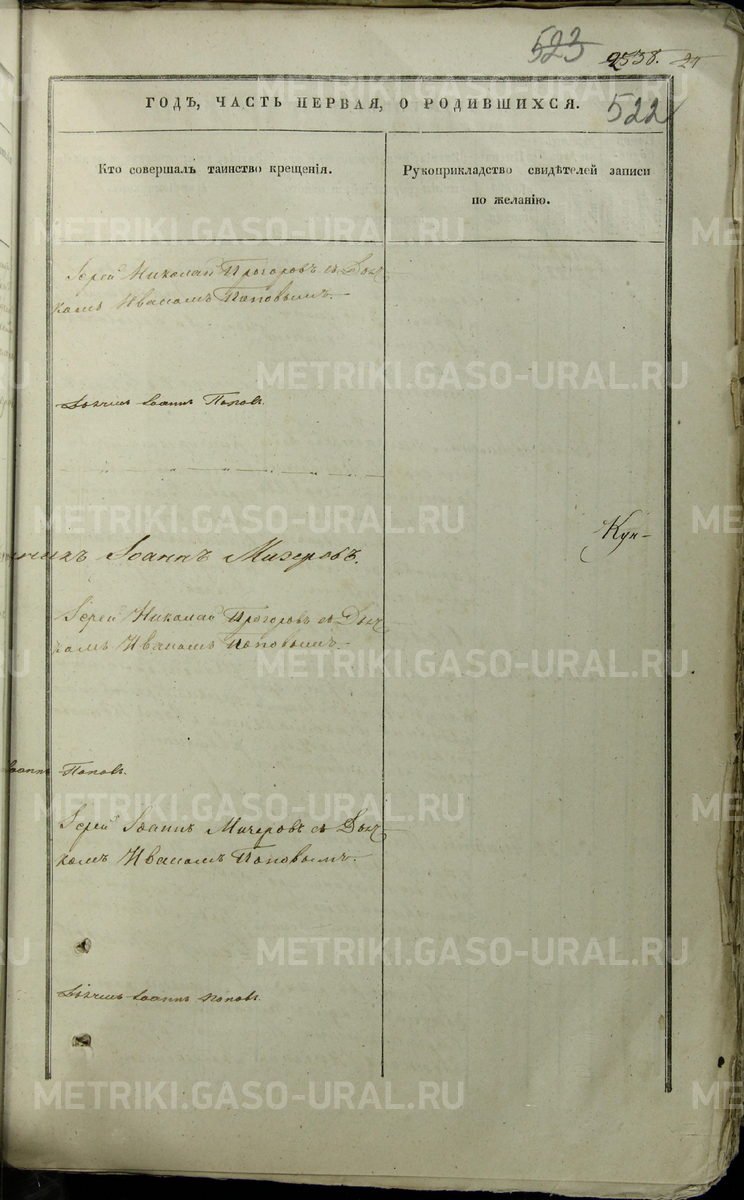 523 2538. 21
ГОДЪ, ЧАСТЬ ПЕРВАЯ, О РОДИВШИХСЯ. 522
Кто совершалъ таинство крещенія.
Рукоприкладство свидѣтелей записи
по желанію.
Іерей Николай Прогоровъ съ Дья-
комъ Иваномъ Поповымъ.
Іоаннъ Поповъ.
Кун-
Іоаннъ Мичеровъ.
Іерей Николай Прогоровъ съ Дья-
комъ Иваномъ Поповымъ.
Іоаннъ Поповъ.
Іерей Іоаннъ Мичеровъ съ Дья-
комъ Иваномъ Поповымъ.
Іоаннъ Поповъ.
METRIKI.GASO-URAL.RU